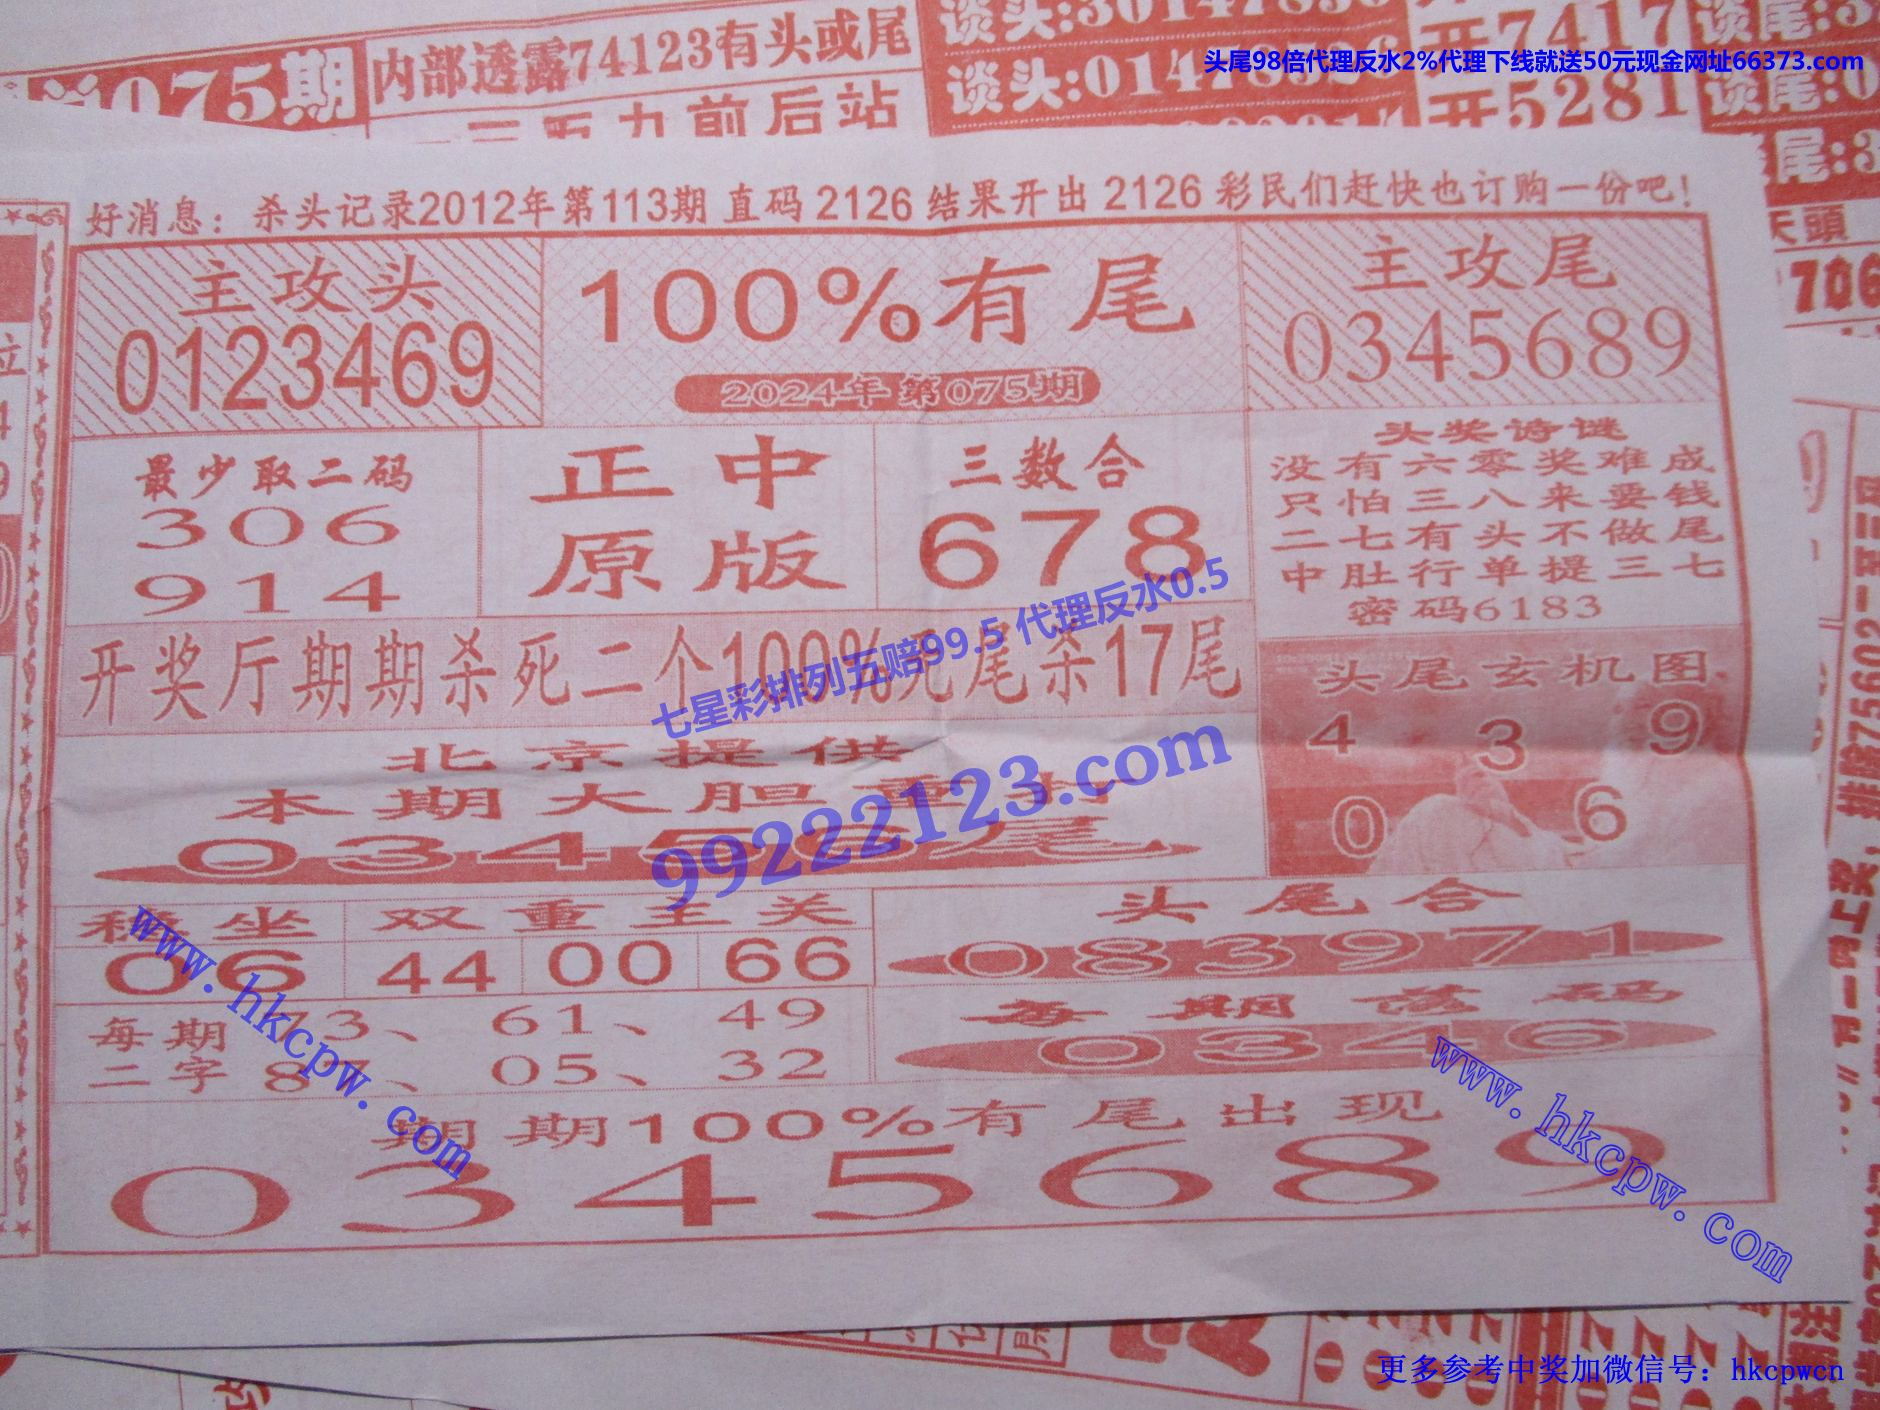 075期
内部透露74123有头或尾
前后站
谈头:0147
开7417
开5281
头尾98倍代理反水2%代理下线就送50元现金网址66373.com
天頭
706
好消息：杀头记录2012年第113期 直码 2126 结果开出 2126 彩民们赶快也订购一份吧！
主攻头
0123469
100%有尾
2024年 第075期
主攻尾
0345689
最少取二码
306
914
正中
原版
三数合
678
头奖诗谜
没有六零奖难成
只怕三八来要钱
二七有头不做尾
中肚行单提三七
密码6183
开奖厅期期杀死二个100%死尾杀17尾
七星彩排列五赔99.5 代理反水0.5
99222123.com
头尾玄机图
4 3 9
0 6
北京提供
本期大胆重打
稳坐
06
双重主关
44 00 66
头尾合
083971
每期
二字
73、 61、 49
87、 05、 32
每期落码
0346
期期100%有尾出现
0345689
www.hkcpw.com
www.hkcpw.com
更多参考中奖加微信号：hkcpwcn